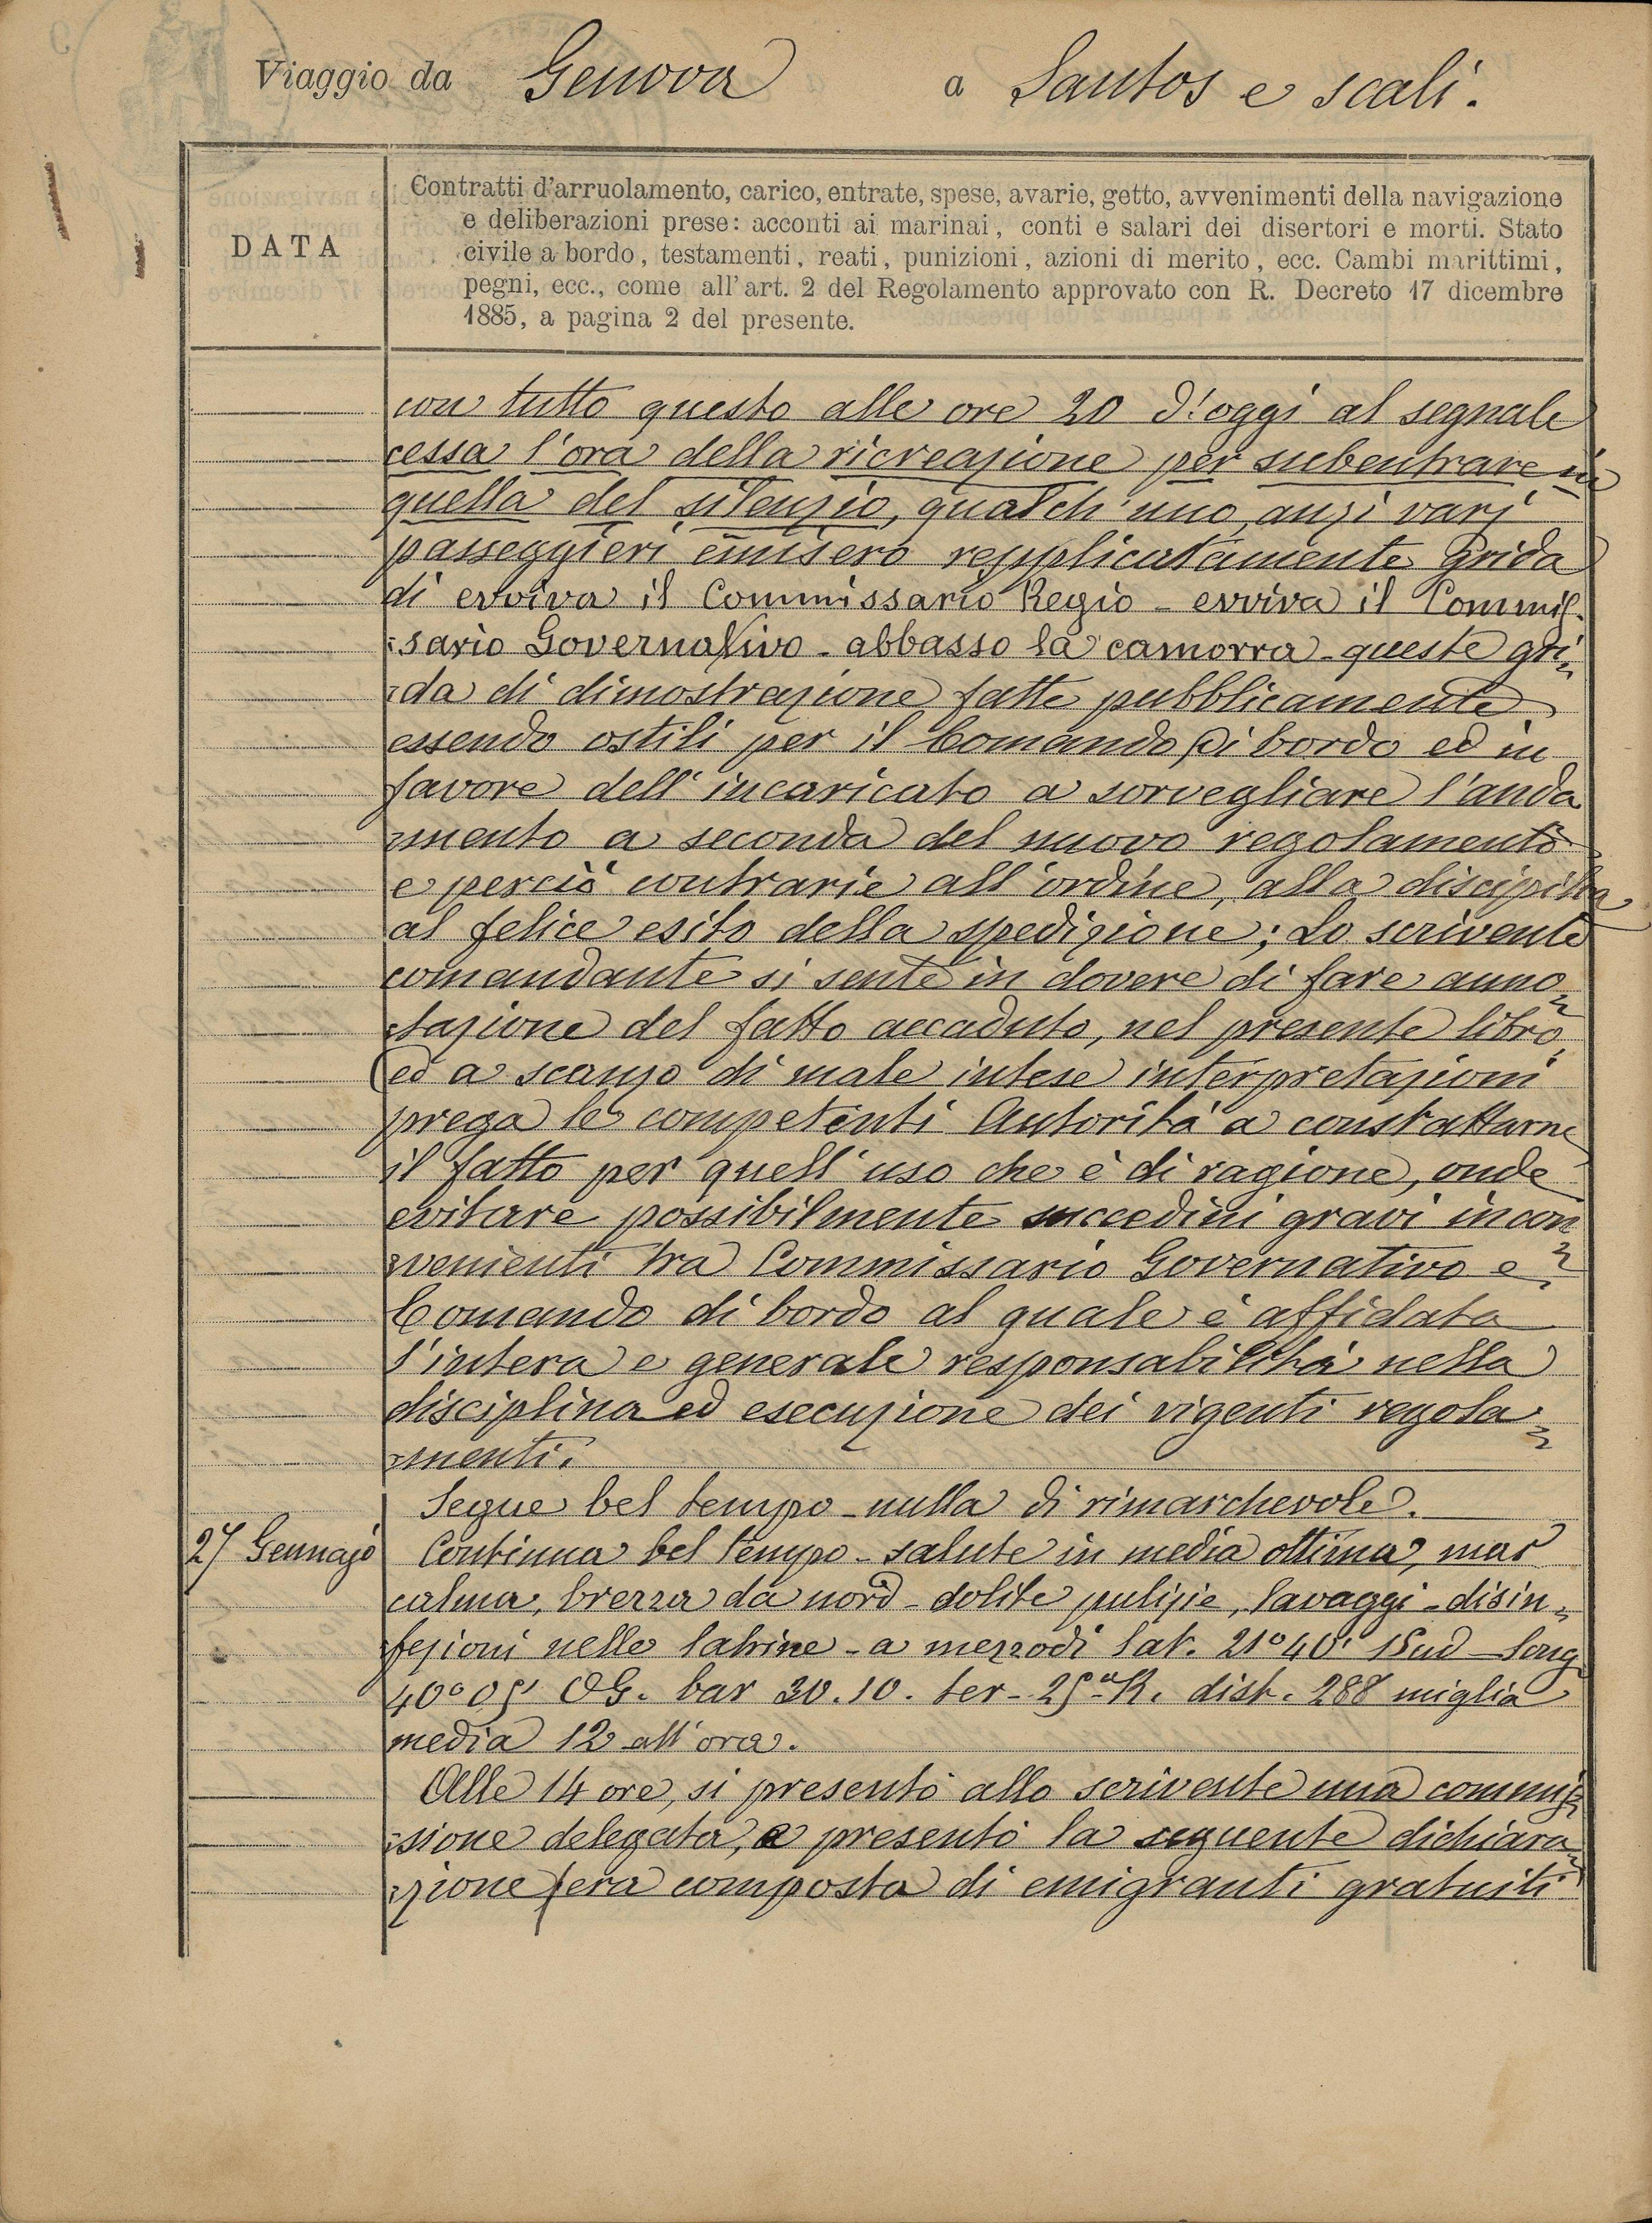 Viaggio da Genova a Santos e scali.
DATA
Contratti d'arruolamento, carico, entrate, spese, avarie, getto, avvenimenti della navigazione
e deliberazioni prese: acconti ai marinai, conti e salari dei disertori e morti. Stato
civile a bordo, testamenti, reati, punizioni, azioni di merito, ecc. Cambi marittimi,
pegni, ecc., come all'art. 2 del Regolamento approvato con R. Decreto 17 dicembre
1885, a pagina 2 del presente.
con tutto questo alle ore 20 d'oggi al segnale
cessa l'ora della ricreazione per subentrare in
quella del silenzio, qualch'uno, anzi varj
passeggieri emisero repplicatamente grida
di evviva il Commissario Regio - evviva il Commis-
:sario Governativo - abbasso la camorra - queste gri=
:da di dimostrazione fatte pubblicamente
essendo ostili per il Comando di bordo ed in
favore dell'incaricato a sorvegliare l'anda
:mento a seconda del nuovo regolamento
e perciò contrarie all'ordine, alla disciplina
al felice esito della spedizione; Lo scrivente
comandante si sente in dovere di fare anno=
:tazione del fatto accaduto, nel presente libro
ed a scanzo di male intese interpretazioni
prega le competenti Autorità a constattarne
il fatto per quell'uso che è di ragione, onde
evitare possibilmente succedini gravi incon
:venienti tra Commissario Governativo e
Comando di bordo al quale è affidata
l'intera e generale responsabilità nella
disciplina ed esecuzione dei vigenti regola=
:menti.
Segue bel tempo - nulla di rimarchevole.
27 Gennajo Continua bel tempo - salute in media ottima, mar
calma, brezza da nord - solite pulizie, lavaggi - disin=
fezioni nelle latrine - a mezzodi lat. 21° 40' Sud - long
40° 05' OG. bar 30.10. ter - 25° R. dist. 288 miglia
media 12 all'ora.
Alle 14 ore, si presentò allo scrivente una commis=
:sione delegata, e presentò la seguente dichiara=
:zione (era composta di emigranti gratuiti